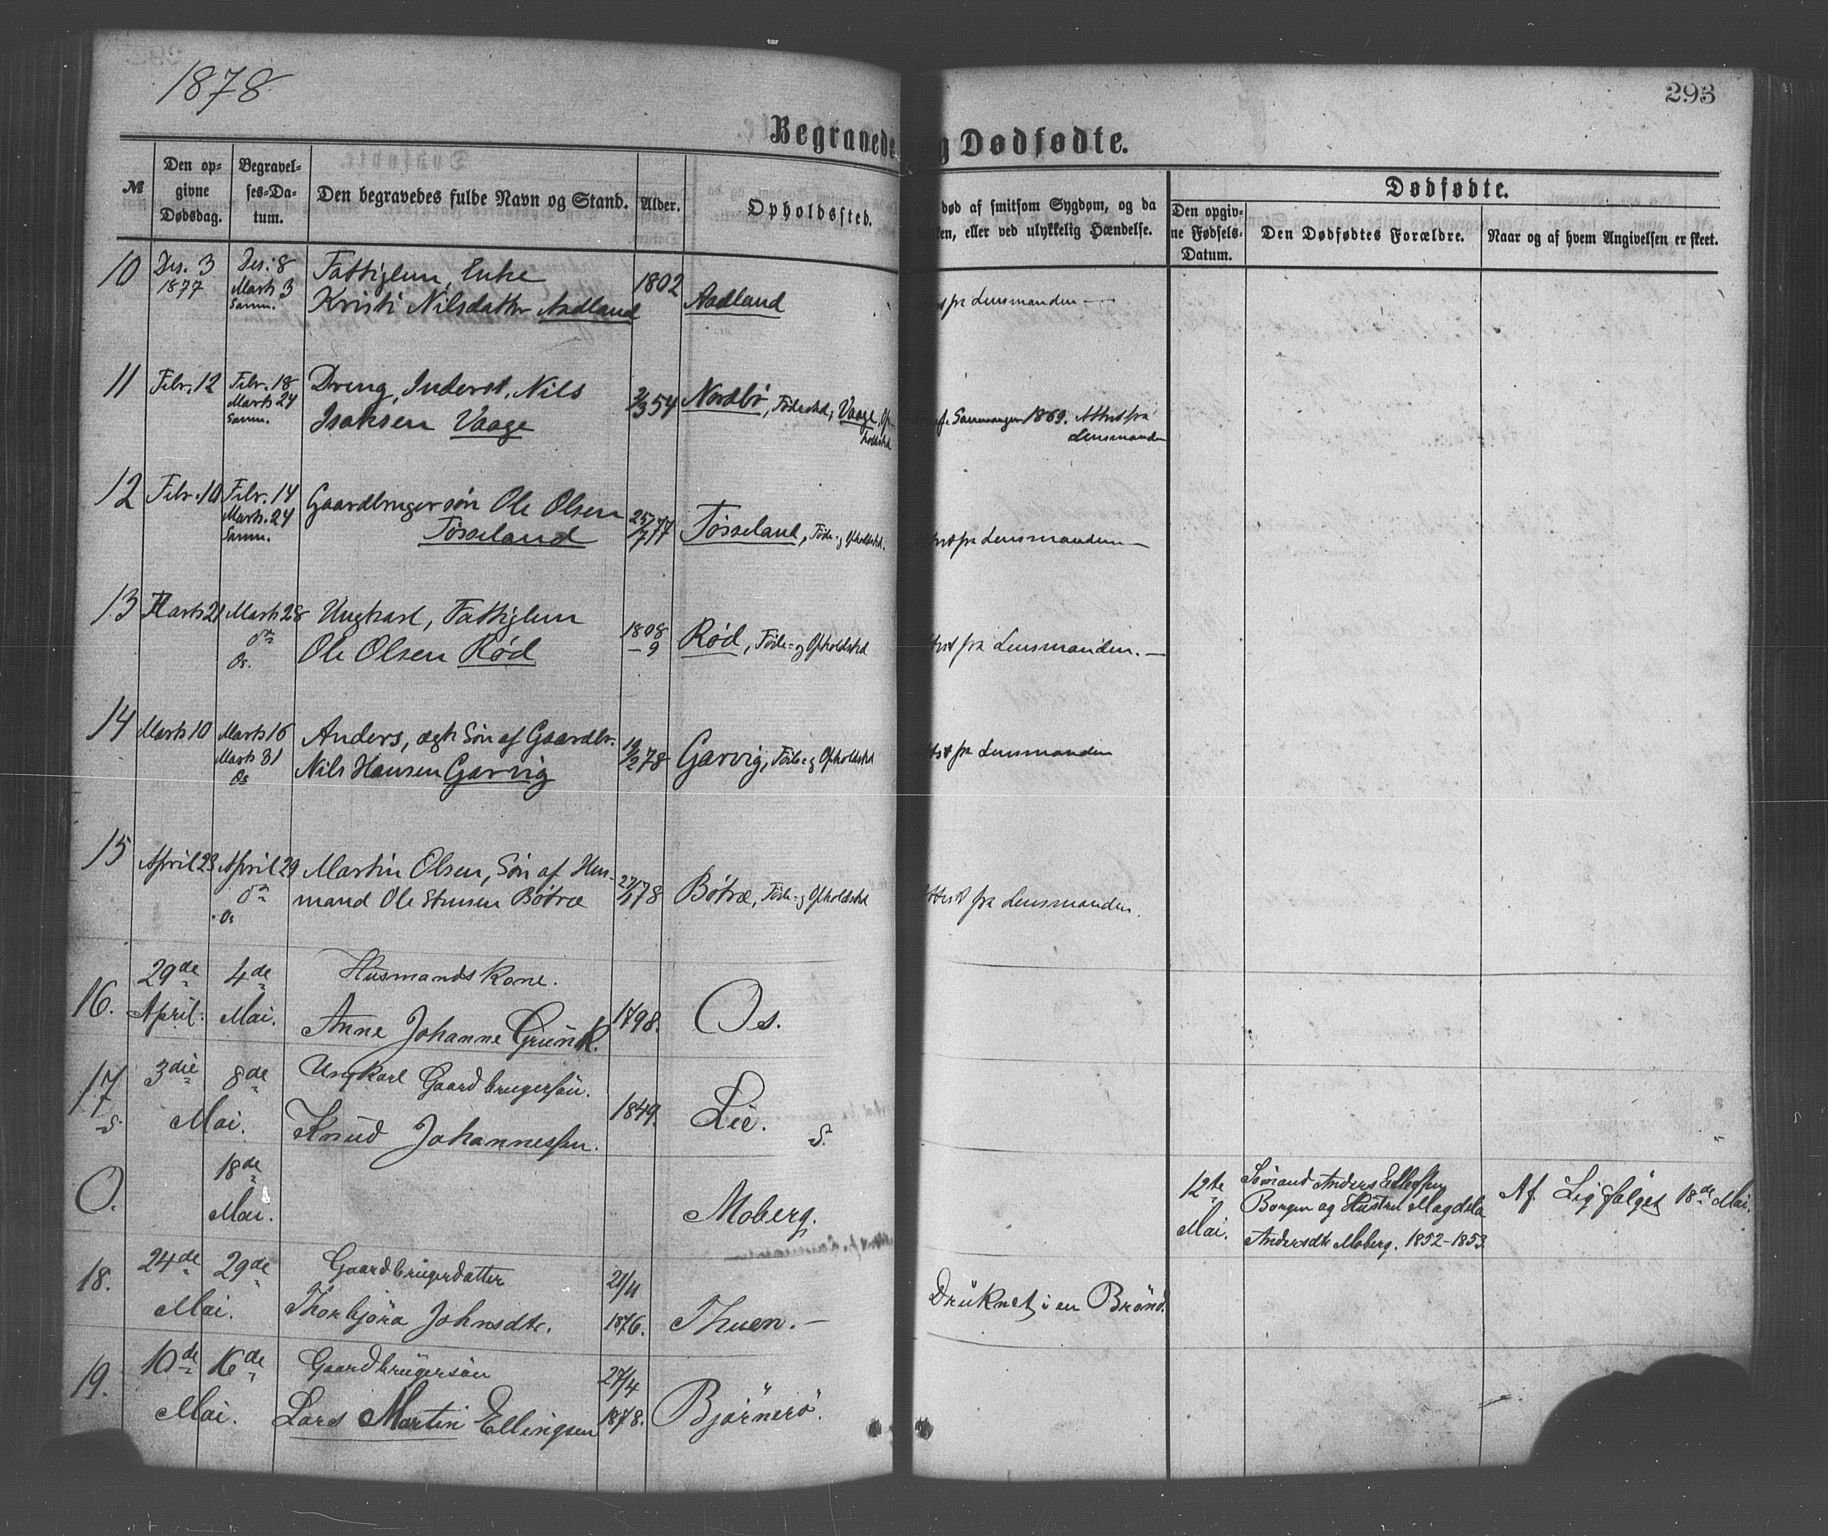 1878
293
Begravede
g Dødfødte.
№
Den op-
givne
Dødsdag.
Begravel-
ses-Da-
tum.
Den begravedes fulde Navn og Stand.
Alder.
Opholdssted.
død af smitsom Sygdom, og da
ken, eller ved ulykkelig Hændelse.
Dødfødte.
Den opgiv-
ne Fødsels-
Datum.
Den Dødfødtes Forældre.
Naar og af hvem Angivelsen er skeet.
10 Des. 3
1877
Des. 8
Marts 3
Samn.
Fattiglem, Enke
Kristi Nilsdatter Aadland
1802
Aadland
fra Lensmanden —
11 Febr. 12
Febr. 18
Marts 24
Samn.
Dreng, Inderst, Nils
Isaksen Vaage
2/3 54
Nordbø, Fødested; Vaage, Op-
holdsted
Samnanger 1869. Attest fra
Lensmanden
12 Febr. 10
Febr. 14
Marts 24
Samn.
Gaardbrugersøn Ole Olsen
Tøsseland
25/7 77
Tøsseland, Føde- og Opholdsted.
fra Lensmanden —
13 Marts 21
Marts 28
Os.
Ungkarl, Fattiglem
Ole Olsen Rød
1808
– 9
Rød, Føde- og Opholdsted
fra Lensmanden. —
14 Marts 10
Marts 16
Marts 31
Os
Anders, ægte Søn af Gaardbr.
Nils Hansen Garvig
19/2 78
Garvig, Føde- og Opholdsted
fra Lensmanden
15 April 23
April 29
Os
Martin Olsen, Søn af Hus-
mand Ole Stensen Bøtræ
27/1 78
Bøtræ, Føde- og Opholdsted
fra Lensmanden.
16. 29de
April.
4de
Mai.
Husmandskone.
Anne Johanne Grünk.
1798.
Os.
17 3die 8de
Mai.
Ungkarl Gaardbrugersön.
Knud Johannessen.
1849.
Lie.
S.
O.
18de
Mai.
Moberg.
12te
Mai.
Sömand Anders Ellefsen
Borgen og Hustru Magdela
Andersdtr Moberg. 1852-1853.
Af Ligfölget 18de Mai.
18. 24de 29de
Mai.
Gaardbrugerdatter
Thorbjöra Johnsdtr.
21/11
1876.
Thuen. —
Drüknet i en Brönd.
19. 10de 16de
Mai.
Gaardbrugersön
Lars Martin Ellingsen
27/4
1878.
Bjørnerö.